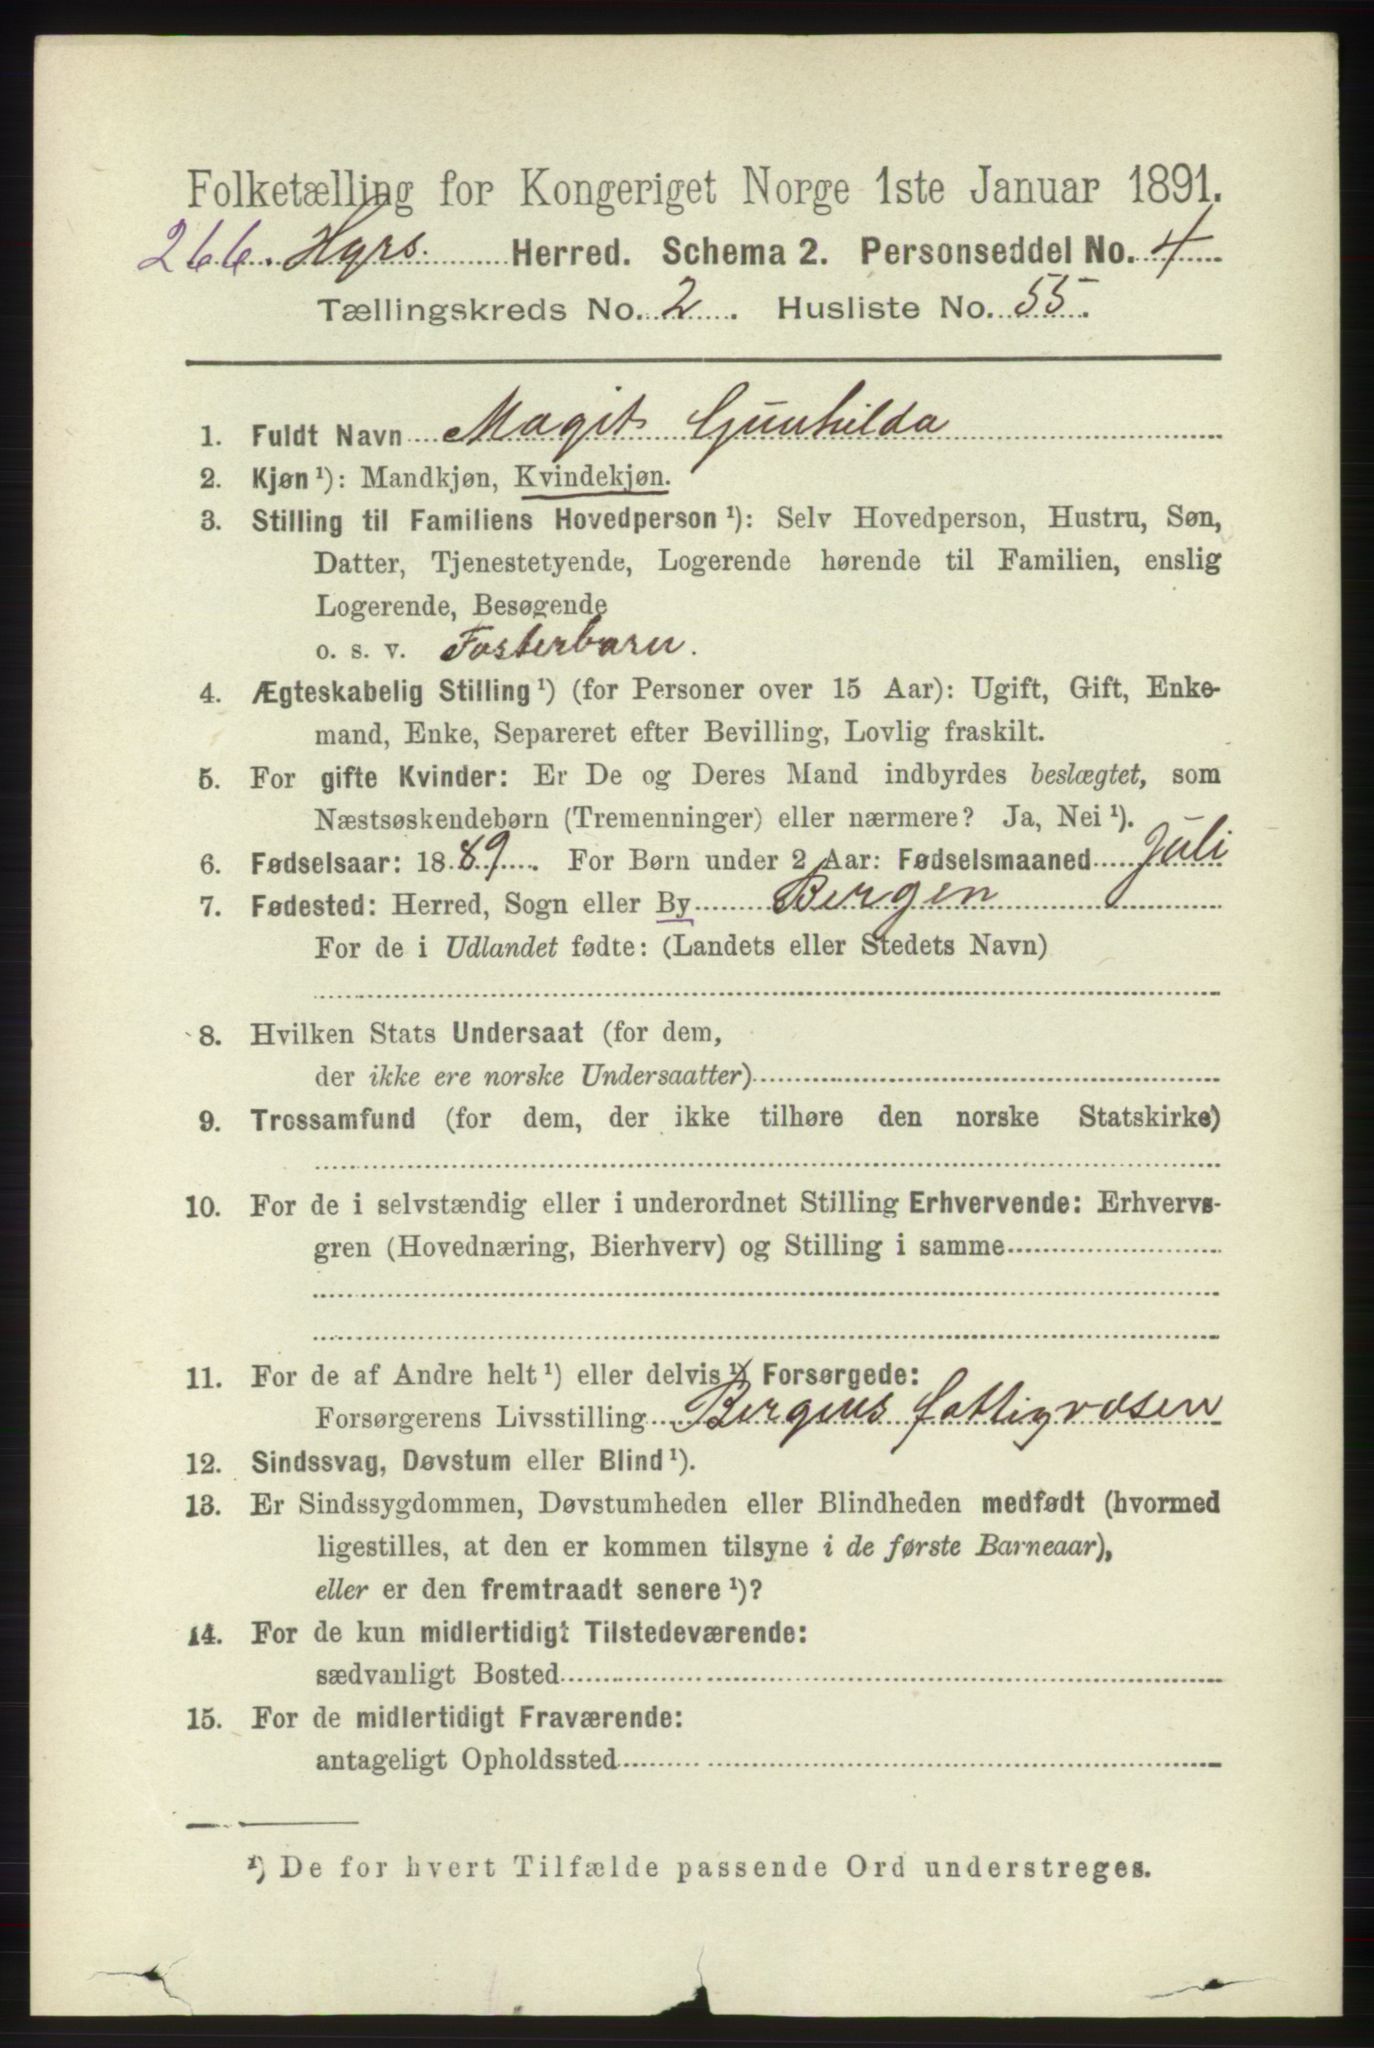 Folketælling for Kongeriget Norge 1ste Januar 1891.
266. Hyrs. Herred. Schema 2. Personseddel No. 4
Tællingskreds No. 2. Husliste No. 55.
1. Fuldt Navn Magit Gunhilda
2. Kjøn ¹): Mandkjøn, Kvindekjøn.
3. Stilling til Familiens Hovedperson ¹): Selv Hovedperson, Hustru, Søn,
Datter, Tjenestetyende, Logerende hørende til Familien, enslig
Logerende, Besøgende
o. s. v. Fosterbarn.
4. Ægteskabelig Stilling ¹) (for Personer over 15 Aar): Ugift, Gift, Enke-
mand, Enke, Separeret efter Bevilling, Lovlig fraskilt.
5. For gifte Kvinder: Er De og Deres Mand indbyrdes beslægtet, som
Næstsøskendebørn (Tremenninger) eller nærmere? Ja, Nei ¹).
6. Fødselsaar: 1889. For Børn under 2 Aar: Fødselsmaaned Juli
7. Fødested: Herred, Sogn eller By Bergen
For de i Udlandet fødte: (Landets eller Stedets Navn)
8. Hvilken Stats Undersaat (for dem,
der ikke ere norske Undersaatter)
9. Trossamfund (for dem, der ikke tilhøre den norske Statskirke)
10. For de i selvstændig eller i underordnet Stilling Erhvervende: Erhvervs-
gren (Hovednæring, Bierhverv) og Stilling i samme
11. For de af Andre helt ¹) eller delvis ¹) Forsørgede:
Forsørgerens Livsstilling Bergens fattigvæsen
12. Sindssvag, Døvstum eller Blind ¹).
13. Er Sindssygdommen, Døvstumheden eller Blindheden medfødt (hvormed
ligestilles, at den er kommen tilsyne i de første Barneaar),
eller er den fremtraadt senere ¹)?
14. For de kun midlertidigt Tilstedeværende:
sædvanligt Bosted
15. For de midlertidigt Fraværende:
antageligt Opholdssted
¹) De for hvert Tilfælde passende Ord understreges.